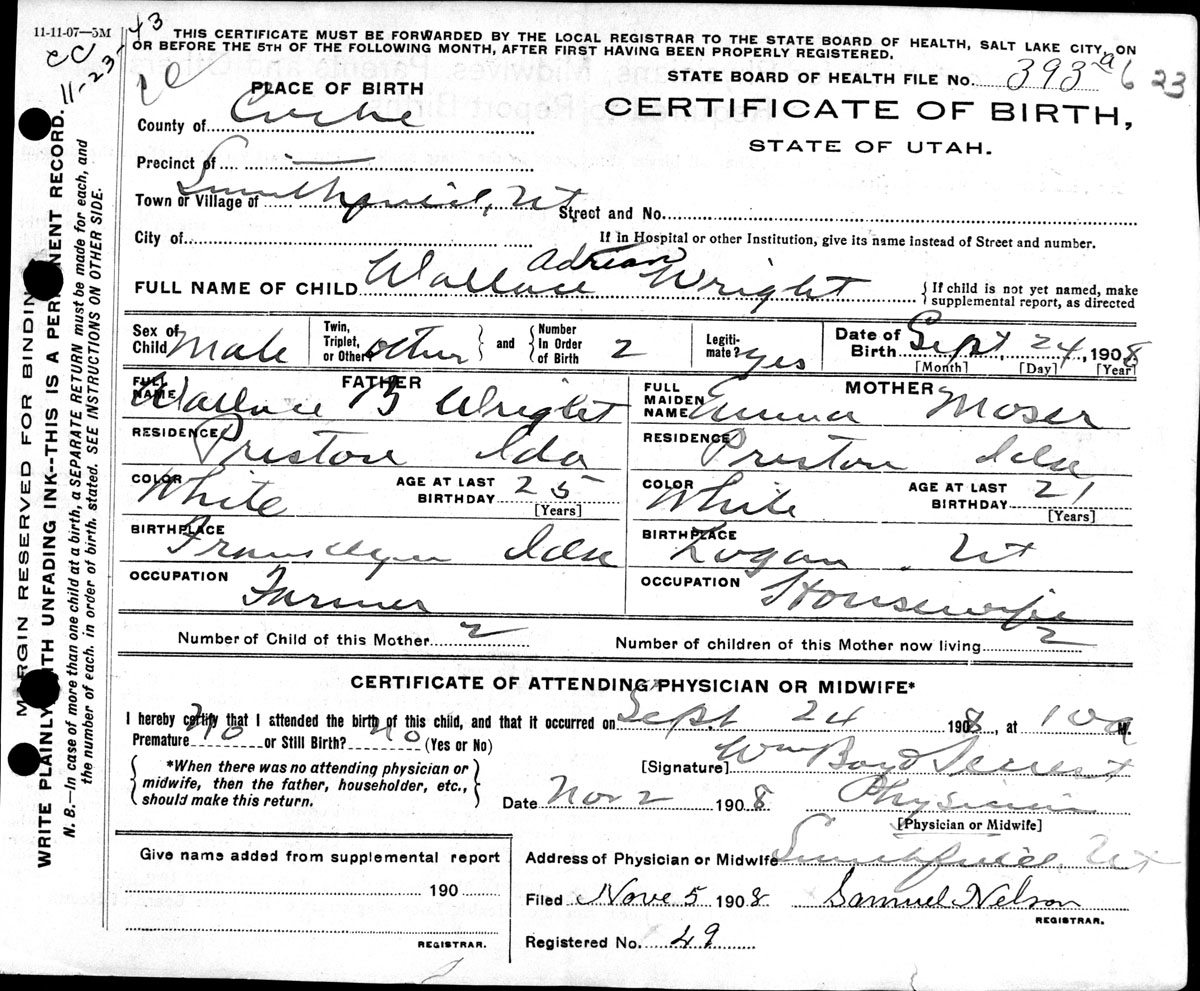 11-11-07—5M
THIS CERTIFICATE MUST BE FORWARDED BY THE LOCAL REGISTRAR TO THE STATE BOARD OF HEALTH, SALT LAKE CITY, ON
OR BEFORE THE 5TH OF THE FOLLOWING MONTH, AFTER FIRST HAVING BEEN PROPERLY REGISTERED.
STATE BOARD OF HEALTH FILE No. 393 a 6 23
11-23-43
PLACE OF BIRTH
CERTIFICATE OF BIRTH,
STATE OF UTAH.
County of Cache
Precinct of
Town or Village of Smithfield, Ut Street and No.
City of If in Hospital or other Institution, give its name instead of Street and number.
FULL NAME OF CHILD Wallace Adrian Wright { If child is not yet named, make
supplemental report, as directed
Sex of Child Male Twin, Triplet, or Other? other } and { Number In Order of Birth 2 Legiti- mate? yes Date of Birth Sept. 24, 1908
[Month] [Day] [Year]
FATHER MOTHER
FULL NAME Wallace B Wright FULL MAIDEN NAME Emma Moser
RESIDENCE Preston Ida RESIDENCE Preston Ida
COLOR White AGE AT LAST BIRTHDAY 25 [Years] COLOR White AGE AT LAST BIRTHDAY 21 [Years]
BIRTHPLACE Ida BIRTHPLACE Logan Ut
OCCUPATION Farmer OCCUPATION Housewife
Number of Child of this Mother 2 Number of children of this Mother now living 2
CERTIFICATE OF ATTENDING PHYSICIAN OR MIDWIFE*
I hereby certify that I attended the birth of this child, and that it occurred on Sept. 24 1908, at 10 a M.
Premature No or Still Birth? no (Yes or No)
*When there was no attending physician or
midwife, then the father, householder, etc.,
should make this return.
[Signature] Wm Boyd
Date Nov 2 1908 Physician
[Physician or Midwife]
Give name added from supplemental report
190
REGISTRAR.
Address of Physician or Midwife Smithfield, Ut
Filed Nove 5 1908 Samuel Nelson
REGISTRAR.
Registered No. 49
MARGIN RESERVED FOR BINDING
WRITE PLAINLY WITH UNFADING INK--THIS IS A PERMANENT RECORD.
N. B.—In case of more than one child at a birth, a SEPARATE RETURN must be made for each, and
the number of each, in order of birth, stated. SEE INSTRUCTIONS ON OTHER SIDE.